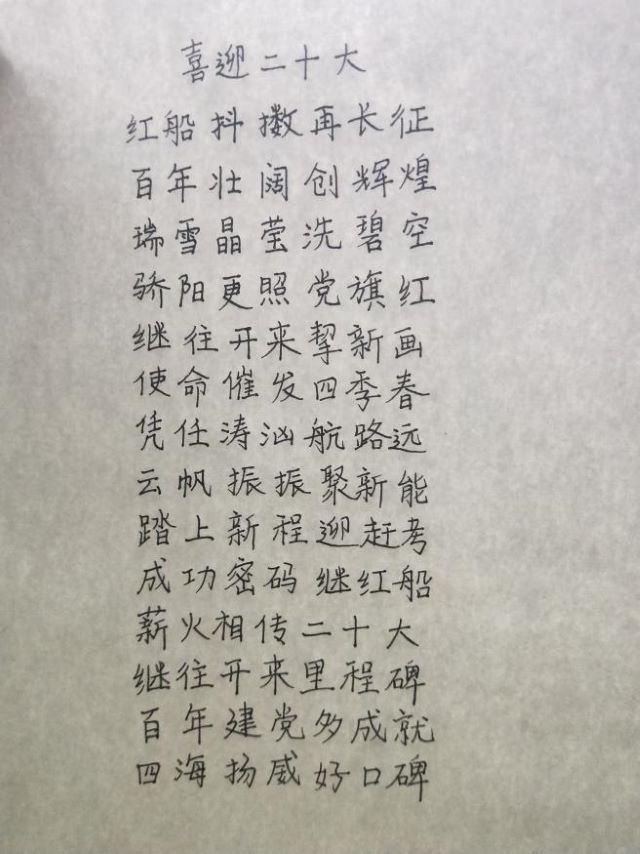 喜迎二十大
红船抖擞再长征
百年壮阔创辉煌
瑞雪晶莹洗碧空
骄阳更照党旗红
继往开来挈新画
使命催发四季春
凭任涛汹航路远
云帆振振聚新能
踏上新程迎赶考
成功密码继红船
薪火相传二十大
继往开来里程碑
百年建党多成就
四海扬威好口碑